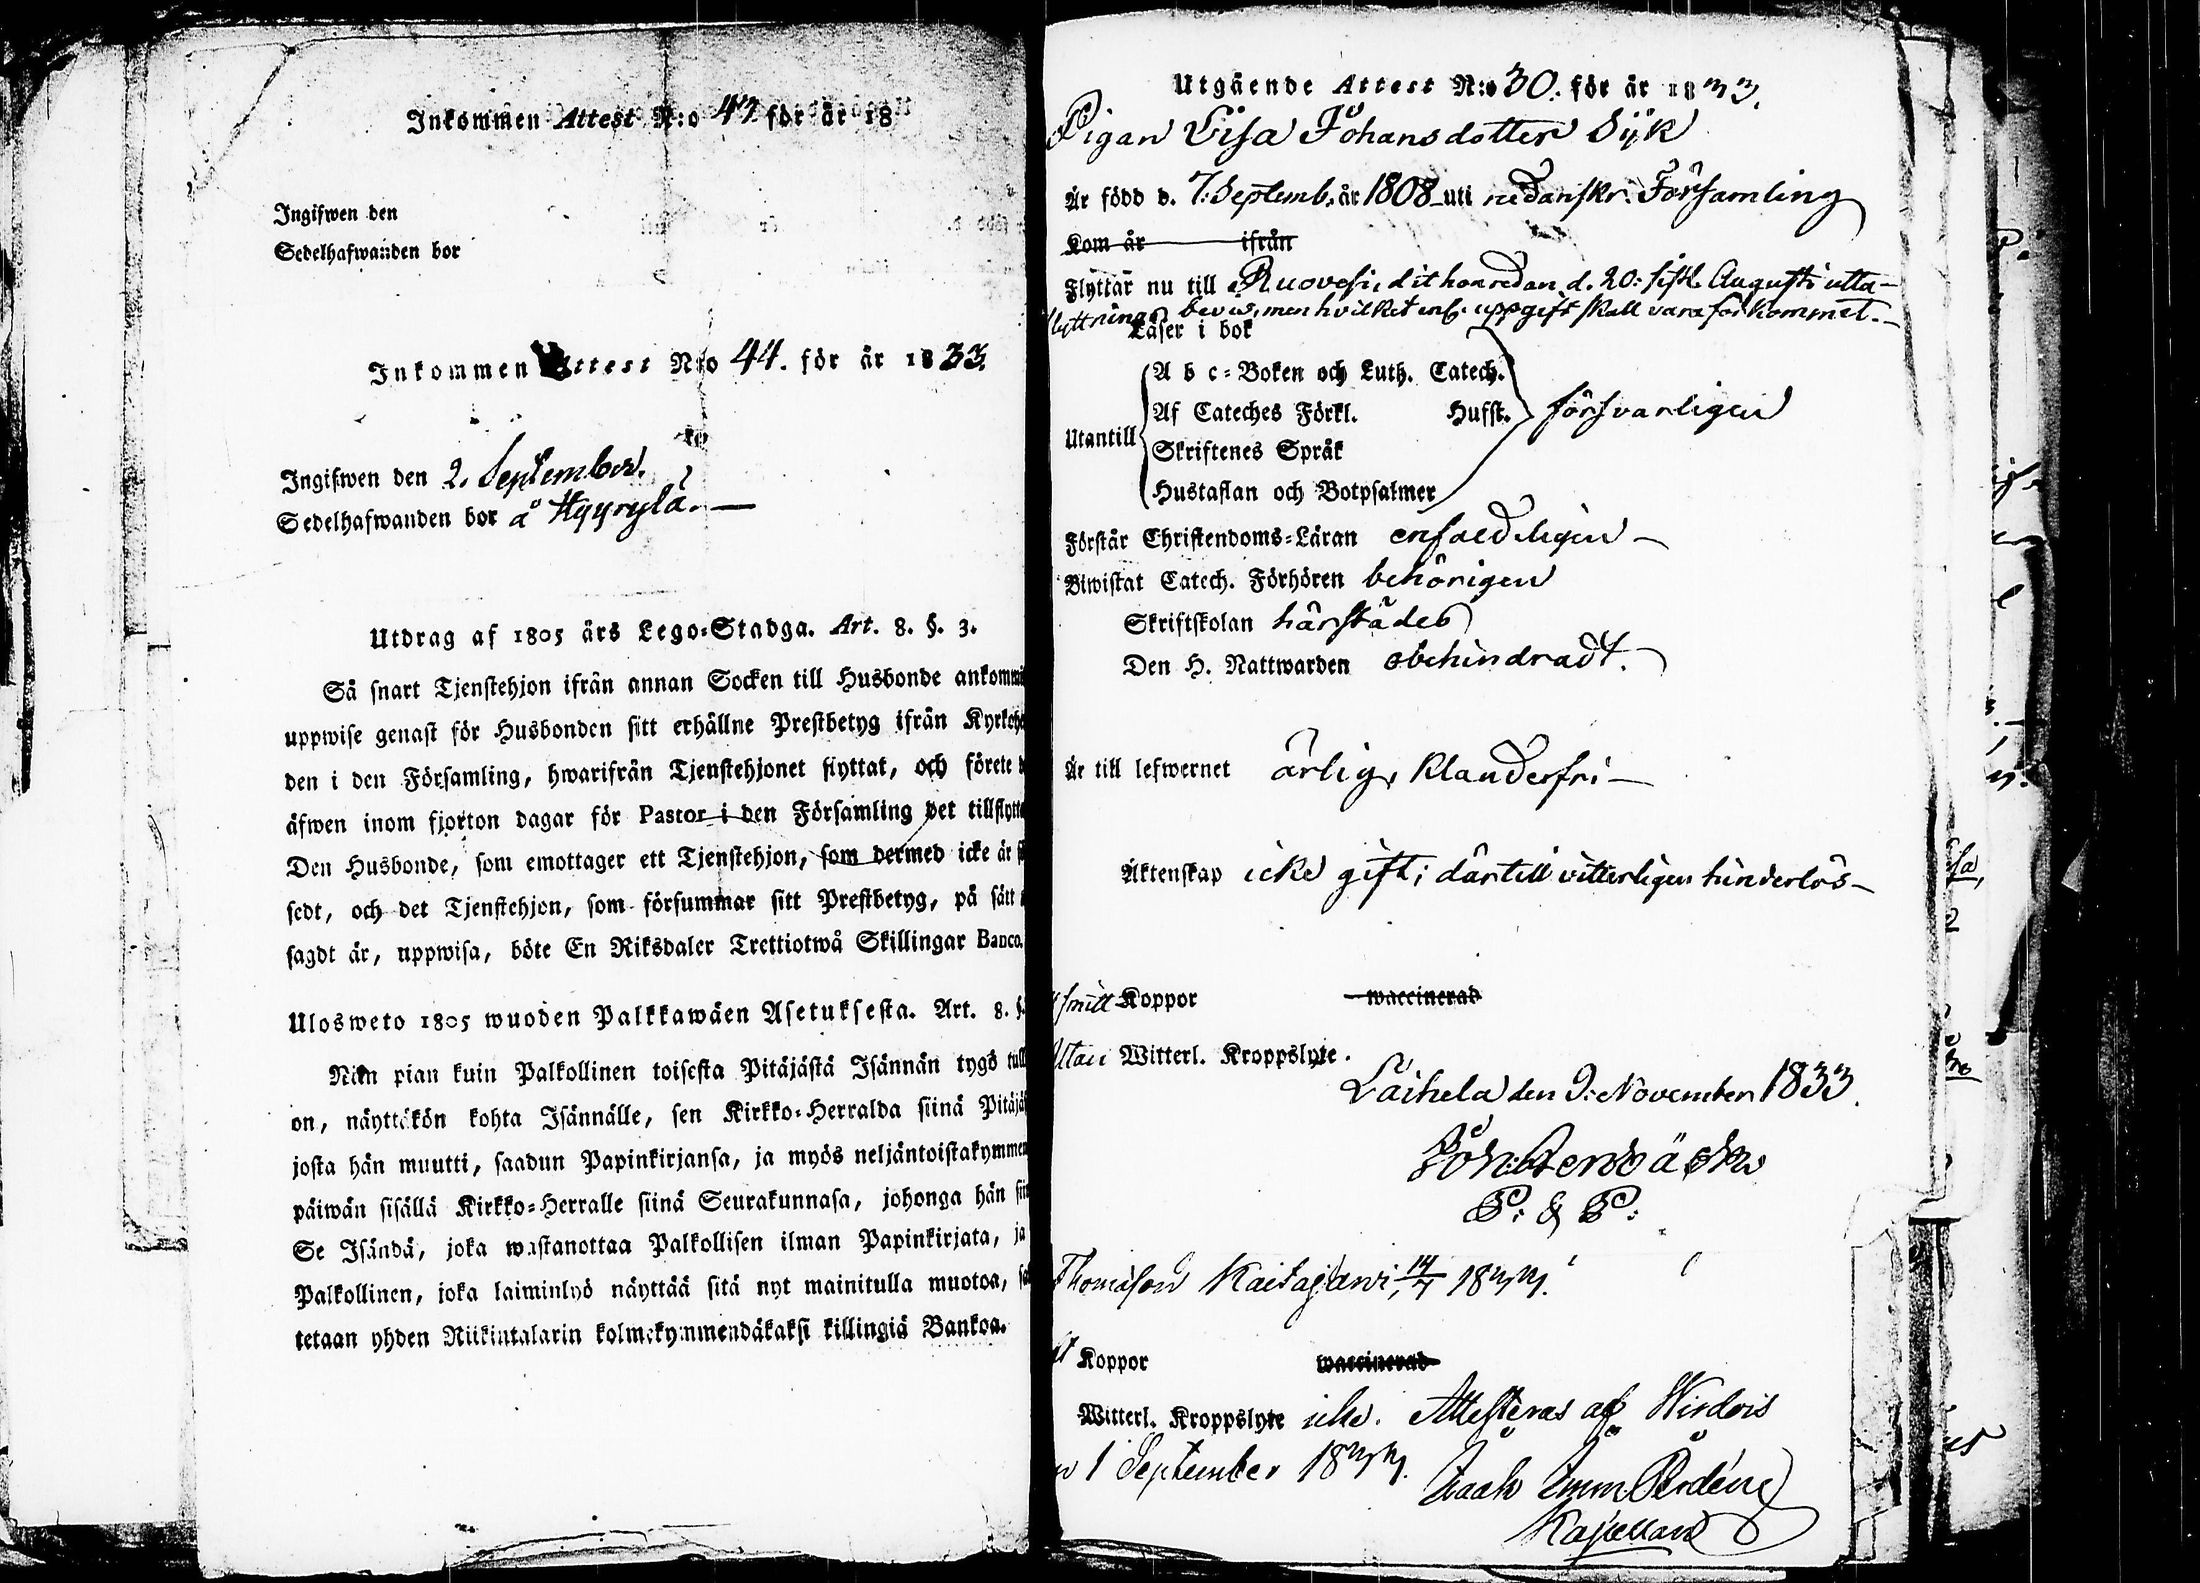 Inkommen Attest N:o 43 för år 18
Ingifwen den
Sedelhafwanden bor
Inkommen Attest N:o 44. för år 1833.
Ingifwen den 2. September.
Sedelhafwanden bor å Hyyrylä. —
Utdrag af 1805 års Lego-Stadga. Art. 8. §. 3.
Så snart Tjenstehjon ifrån annan Socken till Husbonde ankommi
uppwise genast för Husbonden sitt erhållne Prestbetyg ifrån Kyrkohe
den i den Församling, hwarifrån Tjenstehjonet flyttat, och förete d
äfwen inom fjorton dagar för Pastor i den Församling det tillflytta
Den Husbonde, som emottager ett Tjenstehjon, som dermed icke är f
sedt, och det Tjenstehjon, som försummar sitt Prestbetyg, på sätt
sagdt är, uppwisa, böte En Riksdaler Trettiotwå Skillingar Banco.
Ulosweto 1805 wuoden Palkkawäen Asetuksesta. Art. 8. §.
Niin pian kuin Palkollinen toisesta Pitäjästä Isännän tygö tull
on, näyttäkön kohta Isännälle, sen Kirkko-Herralda siinä Pitäjäs
josta hän muutti, saadun Papinkirjansa, ja myös neljäntoistakymmen
päiwän sisällä Kirkko-Herralle siinä Seurakunnasa, johonga hän sii
Se Isändä, joka wastanottaa Palkollisen ilman Papinkirjata, ja
Palkollinen, joka laiminlyö näyttää sitä nyt mainitulla muotoa, sa
tetaan yhden Riikintalarin kolmekymmendäkaksi killingiä Bankoa.
Utgående Attest N:o 30. för år 1833.
Pigan Lisa Johansdotter Syk
Är född d. 7. Septemb. år 1808 uti nedanskr. Församling
Kom år ifrån
Flyttar nu till Ruovesi, dit hon redan d. 20: sistl. Augusti utta-
flyttnings bevis, men hvilket enl. uppgift skall vara förkommet. —
Läser i bok
A b c-Boken och Luth. Catech.
Af Cateches Förkl. Hufst. försvarligen
Utantill
Skriftenes Språk
Hustaflan och Botpsalmer
Förstår Christendoms-Läran enfaldeligen —
Biwistat Catech. Förhören behörigen
Skriftskolan härstädes
Den H. Nattwarden obehindradt.
Är till lefwernet ärlig, klanderfri —
Äktenskap icke gift; därtill vitterligen hinderlös —
Koppor waccinerad
Utan Witterl. Kroppslyte.
Laihela den 9. November 1833.
Joh: Stenbäck
P: & P:
Thomasson Kaitajärvi, 14/7 1833.
Koppor waccinerad
Witterl. Kroppslyte icke. Attesteras af Wirdois
1 September 1833.
Isaak Imm
Kapellan